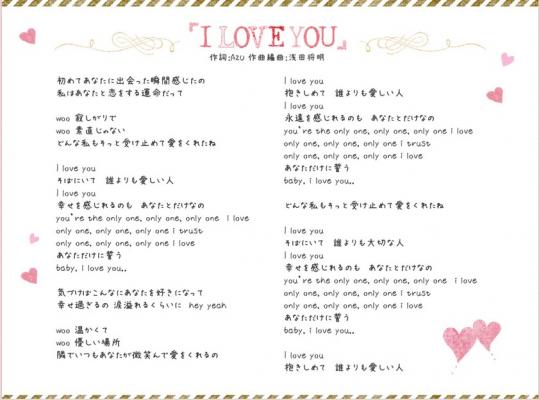 「I LOVE YOU」
作詞:AZU 作曲編曲:浅田将明
初めてあなたに出会った瞬間感じたの
私はあなたと恋をする運命だって
woo 寂しがりで
woo 素直じゃない
どんな私もそっと受け止めて愛をくれたね
I love you
そばにいて 誰よりも愛しい人
I love you
幸せを感じれるのも あなたとだけなの
you're the only one, only one, only one i love
only one, only one, only one i trust
only one, only one, only one i love
あなただけに誓う
baby, i love you..
気づけばこんなにあなたを好きになって
幸せ過ぎるの 涙溢れるくらいに hey yeah
woo 温かくて
woo 優しい場所
隣でいつもあなたが微笑んで愛をくれるの
I love you
抱きしめて 誰よりも愛しい人
I love you
永遠を感じれるのも あなたとだけなの
you're the only one, only one, only one i love
only one, only one, only one i trust
only one, only one, only one i love
あなただけに誓う
baby, i love you..
どんな私もそっと受け止めて愛をくれたね
I love you
そばにいて 誰よりも大切な人
I love you
幸せを感じれるのも あなたとだけなの
you're the only one, only one, only one i love
only one, only one, only one i trust
only one, only one, only one i love
あなただけに誓う
baby, i love you..
I love you
抱きしめて 誰よりも愛しい人